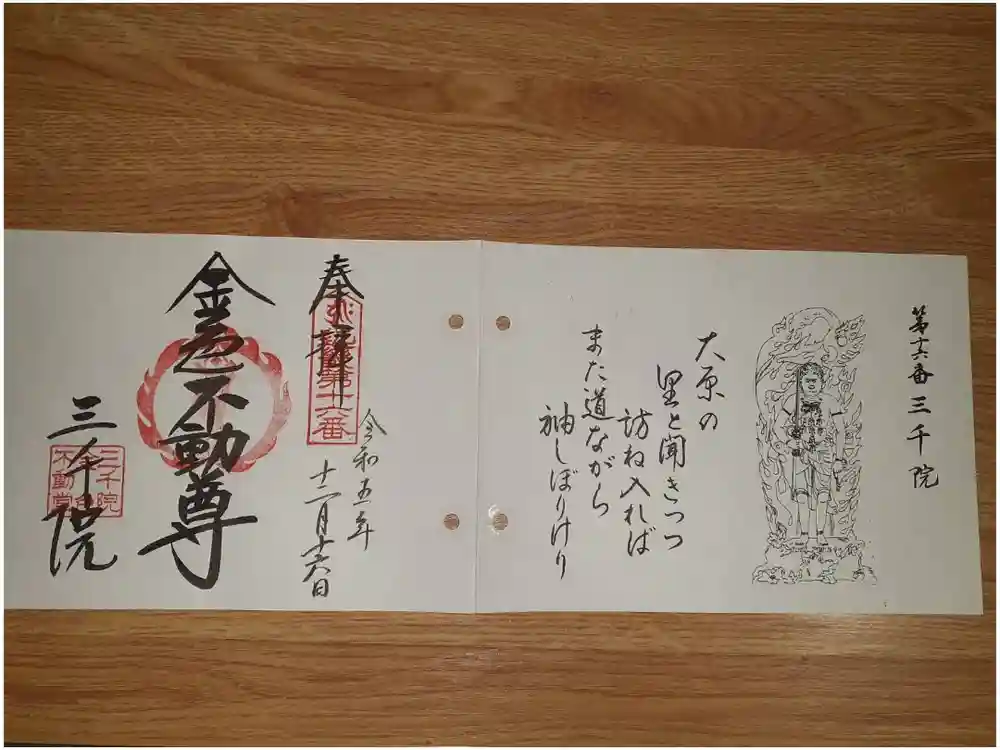 第十六番 三千院
大原の
里と聞きつつ
訪ね入れば
また道ながら
袖しぼりけり
奉拝
第十六番
令和五年
十一月十六日
金色不動尊
三千院
三千院
不動堂